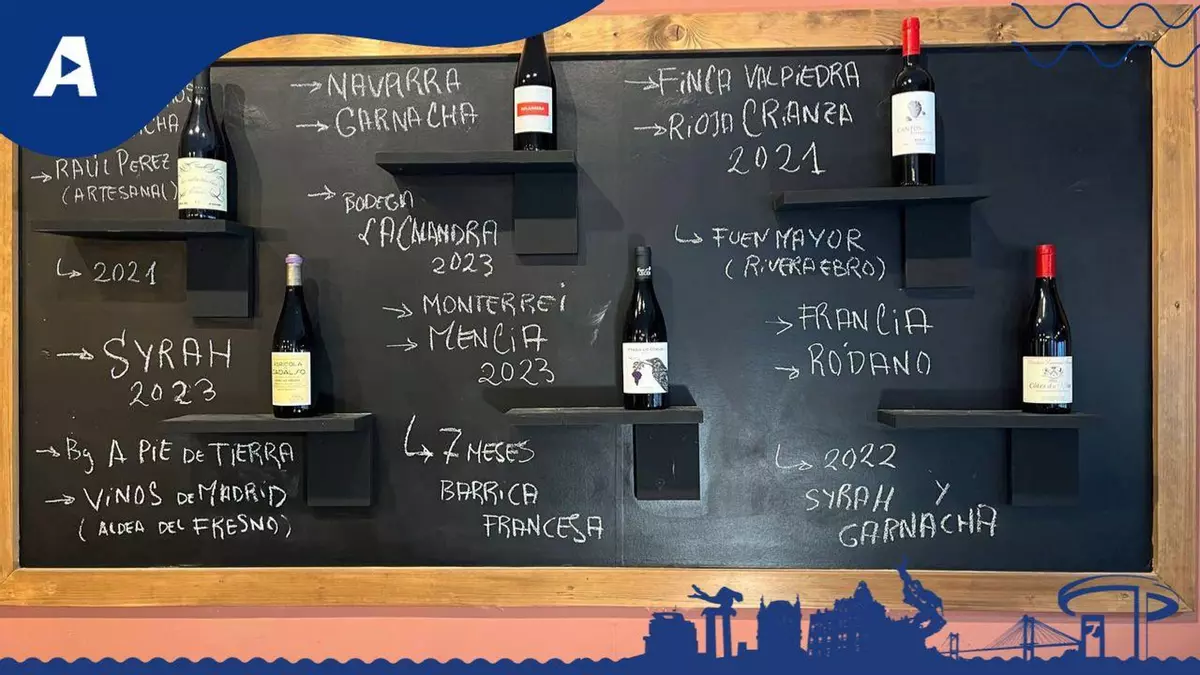 A
RAÚL PEREZ
(ARTESANAL)
2021
SYRAH
2023
Bg A PIE DE TIERRA
VINOS DE MADRID
(ALDEA DEL FRESNO)
NAVARRA
GARNACHA
BODEGA
LA CALANDRA
2023
MONTERREI
MENCIA
2023
7 MESES
BARRICA
FRANCESA
FINCA VALPIEDRA
RIOJA CRIANZA
2021
FUENMAYOR
(RIVERA EBRO)
FRANCIA
RÓDANO
2022
SYRAH Y
GARNACHA